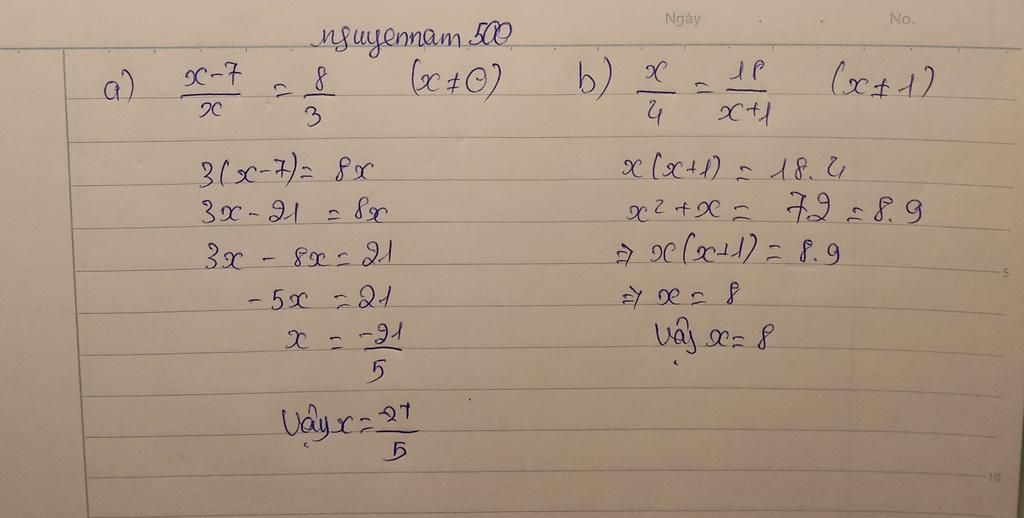 Ngày . . No.
nguyennam 500
a) \frac{x-7}{x} = \frac{8}{3} (x ≠ 0)
3(x-7) = 8x
3x - 21 = 8x
3x - 8x = 21
-5x = 21
x = \frac{-21}{5}
Vậy x = \frac{-21}{5}
b) \frac{x}{4} = \frac{18}{x+1} (x ≠ 1)
x(x+1) = 18.4
x² + x = 72 = 8.9
⇒ x(x+1) = 8.9
⇒ x = 8
Vậy x = 8
5
10